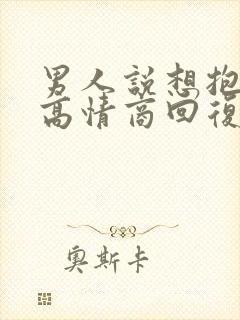 男人説想抱
高情商回復
奧斯卡